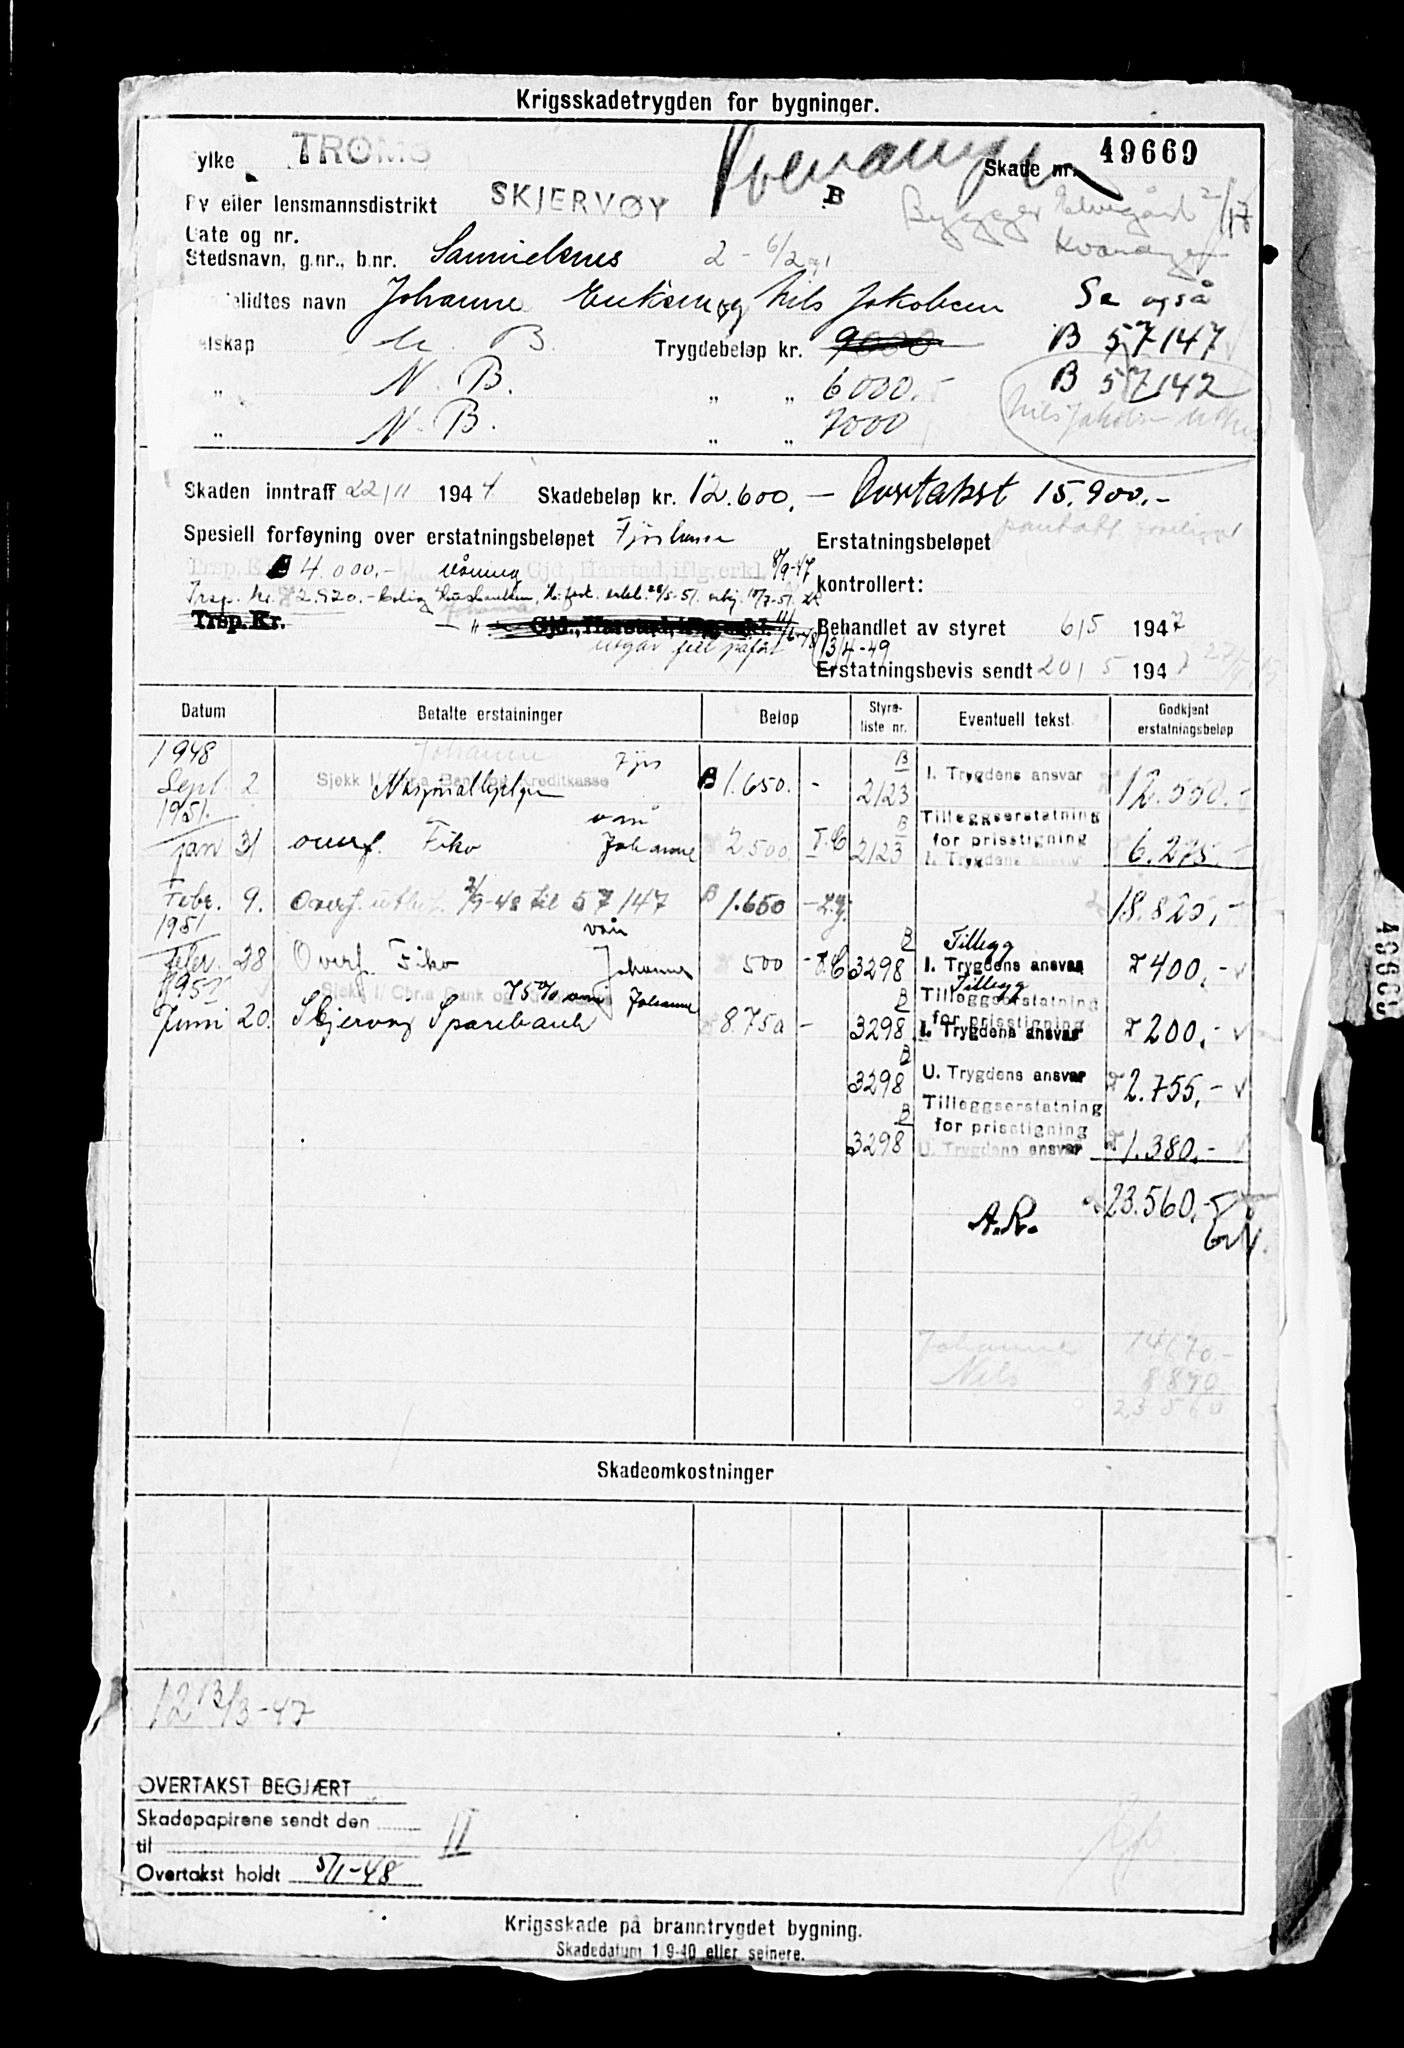 Krigsskadetrygden for bygninger.
Fylke TROMS
Kvænangen
Skade nr. 49669
By eller lensmannsdistrikt SKJERVØY
B
Bygger Elvegård 2/17
Gate og nr.
Kvænangen
Stedsnavn, g.nr., b.nr. Samuelsnes 2 - 6/2
navn Johanne Eriksen og Nils Jakobsen Se også
N. B. Trygdebeløp kr. 9000 B 57147
" N. B. " " 6000.- B 57142
" N. B. " " 7000 Nils Jakobsen
Skaden inntraff 22/11 1944 Skadebeløp kr. 12.600,- Overtakst 15.900.-
Spesiell forføyning over erstatningsbeløpet Fjøs Erstatningsbeløpet
Trsp. Kr. B 4.000.- våning Gjd., Harstad, iflg. erkl. 8/9-47 kontrollert:
Trsp. kr. 2.920.- bolig Husbanken,
Johanne
Trsp. Kr. " Gjd., Harstad, iflg. erkl. Behandlet av styret 6/5 1947
utgår 13/4-49
Erstatningsbevis sendt 20/5 1947
Datum Betalte erstatninger Beløp Styre-liste nr. Eventuell tekst Godkjent erstatningsbeløp
1948 Johanne Fjøs B
Sept. 2 Sjekk 1/ Chr.a Bank og Kreditkasse B 1.650.- 2123 I. Trygdens ansvar 12.550.-
1951. vån B Tilleggserstatning for prisstigning
jan 31 overf. Fiko Johanne 2500 2123 I. Trygdens ansvar 6.275.-
Febr. 9. Overf. 2/9-48 til 57147 B 1.650 - 18.825,-
1951 vån B Tillegg
febr. 28 Overf. Fiko Johanne 500 - 3298 I. Trygdens ansvar 400,-
Sjekk 1/ Chr.a Bank og 75% vån B Tillegg
Tilleggserstatning for prisstigning
Juni 20. Skjervøy Sparebank Johanne 8.750 - 3298 I. Trygdens ansvar 200,-
B
3298 U. Trygdens ansvar 2.755,-
B Tilleggserstatning for prisstigning
3298 U. Trygdens ansvar 1.380,-
23.560,-
A.R.
Johanne 14670.-
Nils 8890
23560
Skadeomkostninger
12 13/3-47
OVERTAKST BEGJÆRT
Skadepapirene sendt den
til
II
Overtakst holdt 5/1-48
Krigsskade på branntrygdet bygning.
Skadedatum 1/9-40 eller seinere.
49669